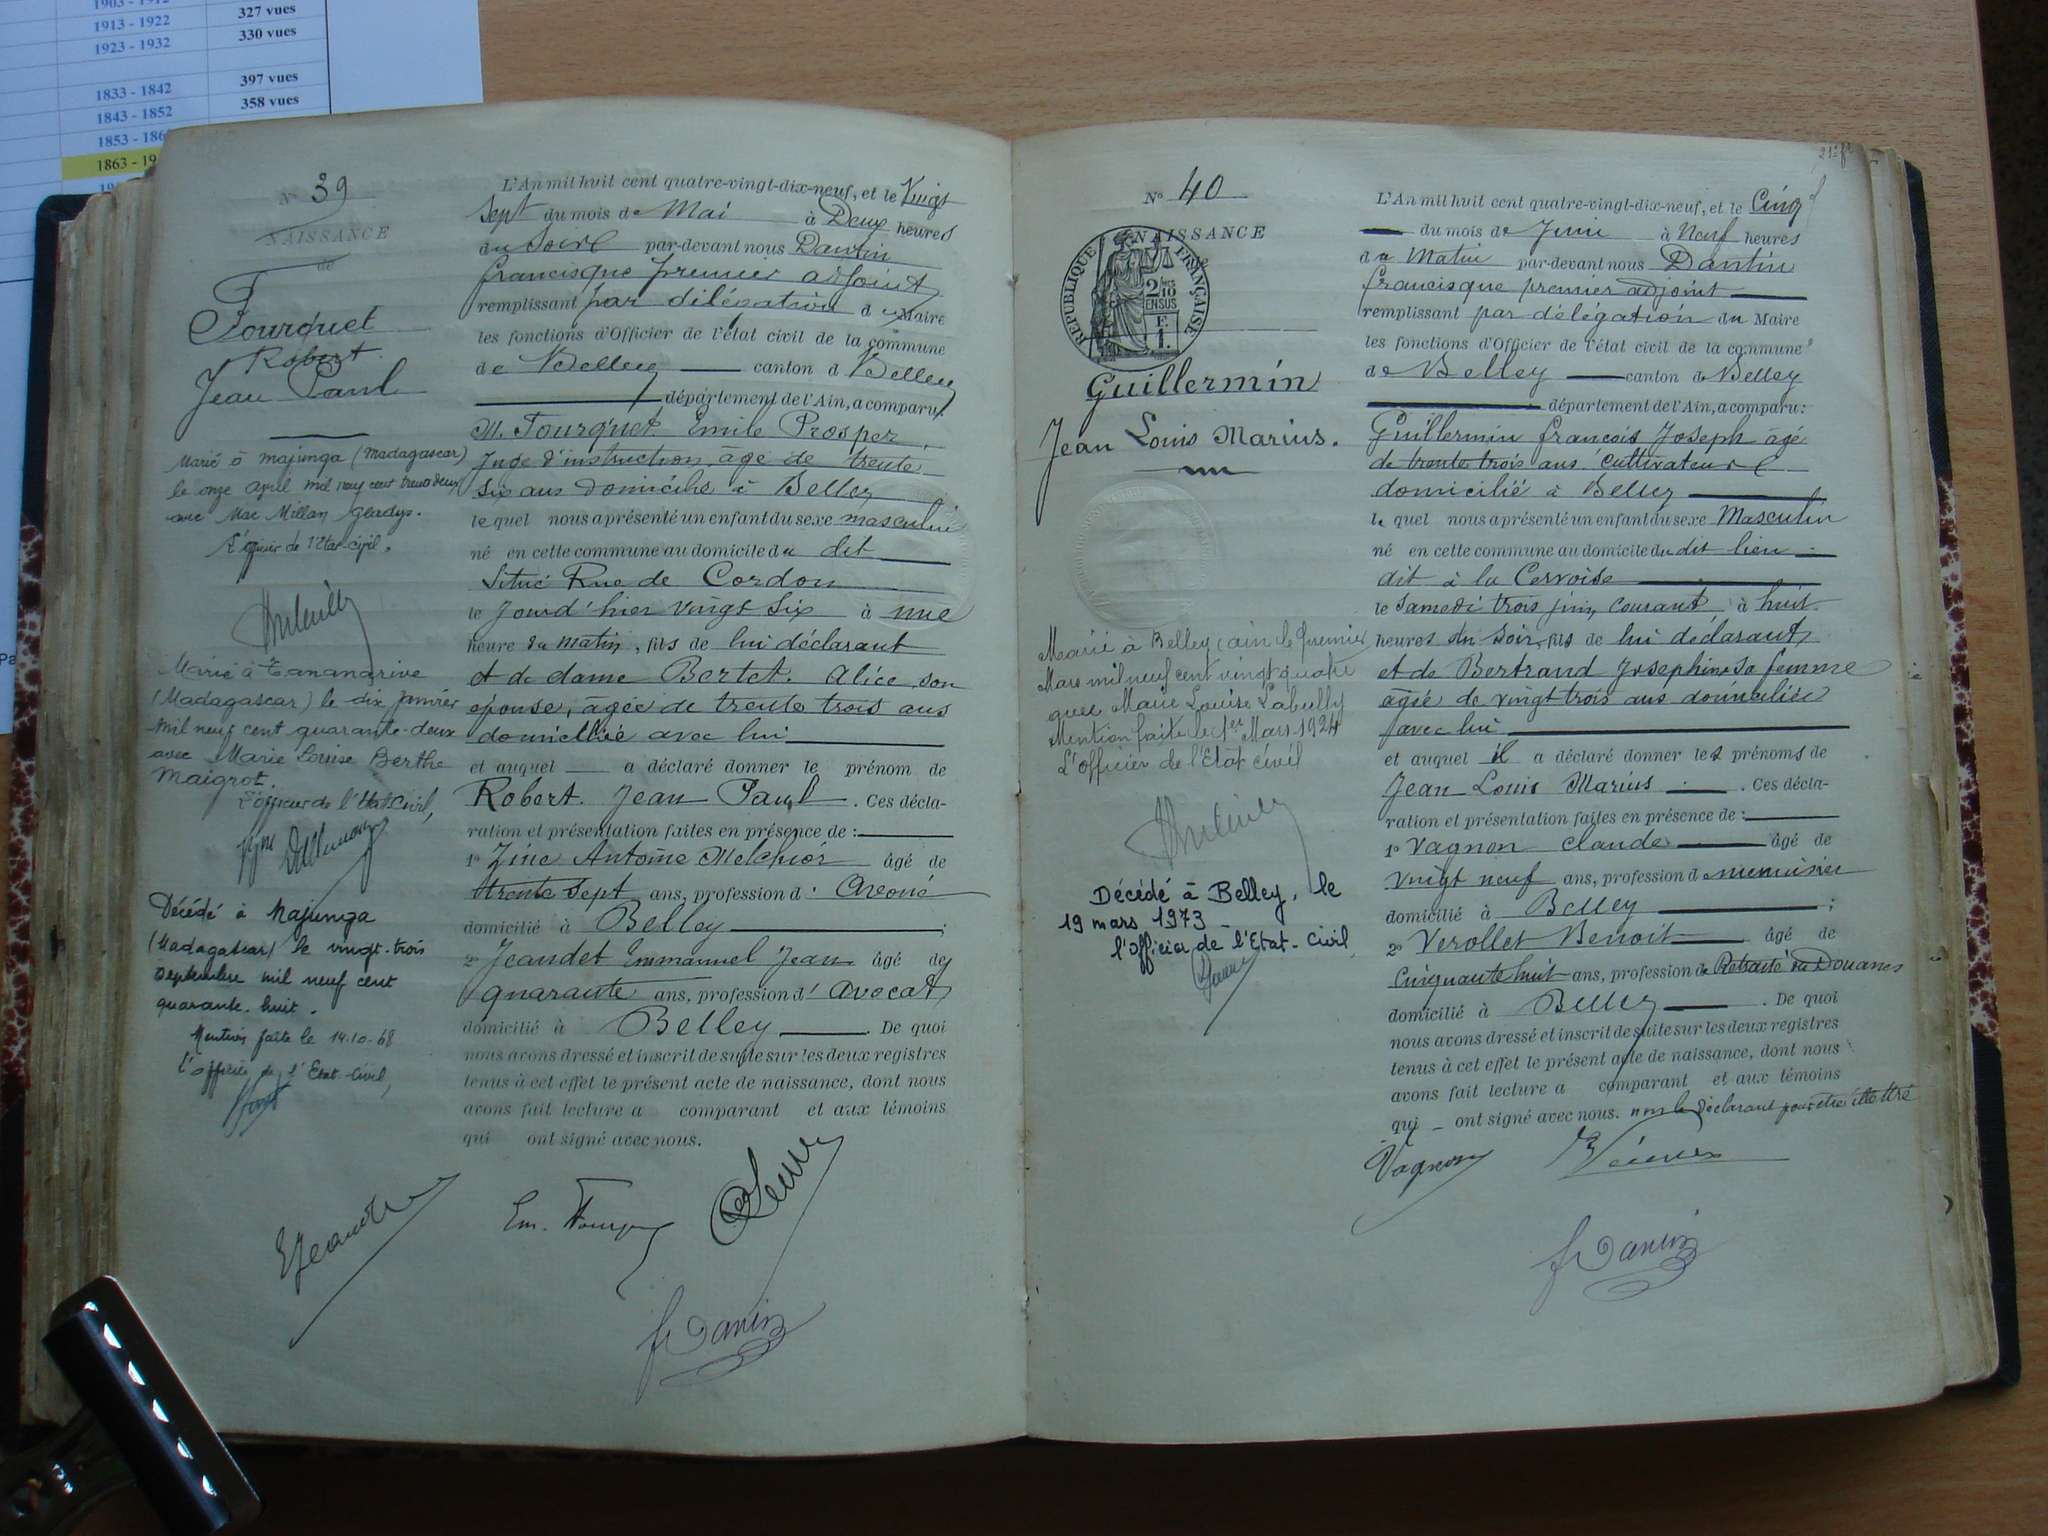 1903 - 1912
1913 - 1922 327 vues
1923 - 1932 330 vues
1833 - 1842 397 vues
1843 - 1852 358 vues
1853 - 186
1863 - 19
N° 39
NAISSANCE
de
Fourquet
Robert
Jean Paul
Marié à Majunga (Madagascar)
le onze avril mil neuf cent trente deux
avec Mac Millan Gladys.
L'officier de l'Etat-civil.
Marié à Tananarive
(Madagascar) le dix janvier
mil neuf cent quarante-deux
avec Marie Louise Berthe
Maigrot.
L'officier de l'Etat Civil,
Décédé à Majunga
(Madagascar) le vingt-trois
septembre mil neuf cent
quarante-huit.
Mention faite le 14.10.68
l'officier de l'Etat-Civil,
L'An mil huit cent quatre-vingt-dix-neuf, et le Vingt
sept du mois de Mai à Deux heures
du soir par-devant nous Dantin
francisque premier adjoint
remplissant par délégation du Maire
les fonctions d'Officier de l'état civil de la commune
de Belley canton d Belley
département de l'Ain, a comparu:
M. Fourquet Emile Prosper
Juge d'instruction âgé de trente
six ans domicilié à Belley
lequel nous a présenté un enfant du sexe masculin
né en cette commune au domicile du dit
situé Rue de Cordon
le jourd'hier vingt six à une
heure du matin, fils de lui déclarant
et de dame Bertet Alice son
épouse, âgée de trente trois ans
domiciliée avec lui
et auquel a déclaré donner le prénom de
Robert Jean Paul. Ces décla-
ration et présentation faites en présence de :
1° Zine Antoine Melchior âgé de
trente sept ans, profession d' Avoué
domicilié à Belley ;
2° Jeandet Emmanuel Jean âgé de
quarante ans, profession d' Avocat
domicilié à Belley . De quoi
nous avons dressé et inscrit de suite sur les deux registres
tenus à cet effet le présent acte de naissance, dont nous
avons fait lecture a comparant et aux témoins
qui ont signé avec nous.
EJeandet
Em. Fourquet
fDantin
21e ft
N° 40
NAISSANCE
de
REPUBLIQUE FRANÇAISE
2/10 EN SUS
F. 1.
Guillermin
Jean Louis Marius.
Marié à Belley (ain) le premier
Mars mil neuf cent vingt quatre
avec Marie Louise Labully
Mention faite le 1er Mars 1924
L'officier de l'Etat civil
Décédé à Belley, le
19 mars 1973
l'officier de l'Etat-Civil
L'An mil huit cent quatre-vingt-dix-neuf, et le Cinq
du mois de Juin à Neuf heures
du Matin par-devant nous Dantin
francisque premier adjoint
remplissant par délégation du Maire
les fonctions d'Officier de l'état civil de la commune
de Belley canton de Belley
département de l'Ain, a comparu:
Guillermin françois Joseph âgé
de trente trois ans cultivateur
domicilié à Belley
lequel nous a présenté un enfant du sexe Masculin
né en cette commune au domicile du dit lieu
dit à la Cervoise
le samedi trois juin courant à huit
heures du soir, fils de lui déclarant
et de Bertrand Josephine sa femme
âgée de vingt trois ans domiciliée
avec lui
et auquel il a déclaré donner les prénoms de
Jean Louis Marius . Ces décla-
ration et présentation faites en présence de :
1° Vagnon Claude âgé de
vingt neuf ans, profession d menuisier
domicilié à Belley ;
2° Verollet Benoit âgé de
Cinquante huit ans, profession de Retraité des Douanes
domicilié à Belley . De quoi
nous avons dressé et inscrit de suite sur les deux registres
tenus à cet effet le présent acte de naissance, dont nous
avons fait lecture a comparant et aux témoins
qui ont signé avec nous. non le déclarant pour être illettré
Vagnon
fDantin